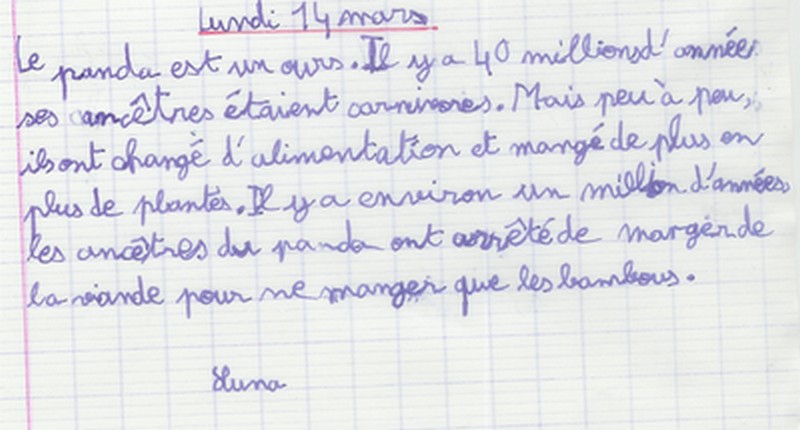 Lundi 14 mars
Le panda est un ours. Il y a 40 millions d' année
ses ancêtres étaient carnivores. Mais peu à peu,
ils ont changé d'alimentation et mangé de plus en
plus de plantes. Il y a environ un million d'années
les ancêtres du panda ont arrêté de marger de
la viande pour ne manger que les bambous.